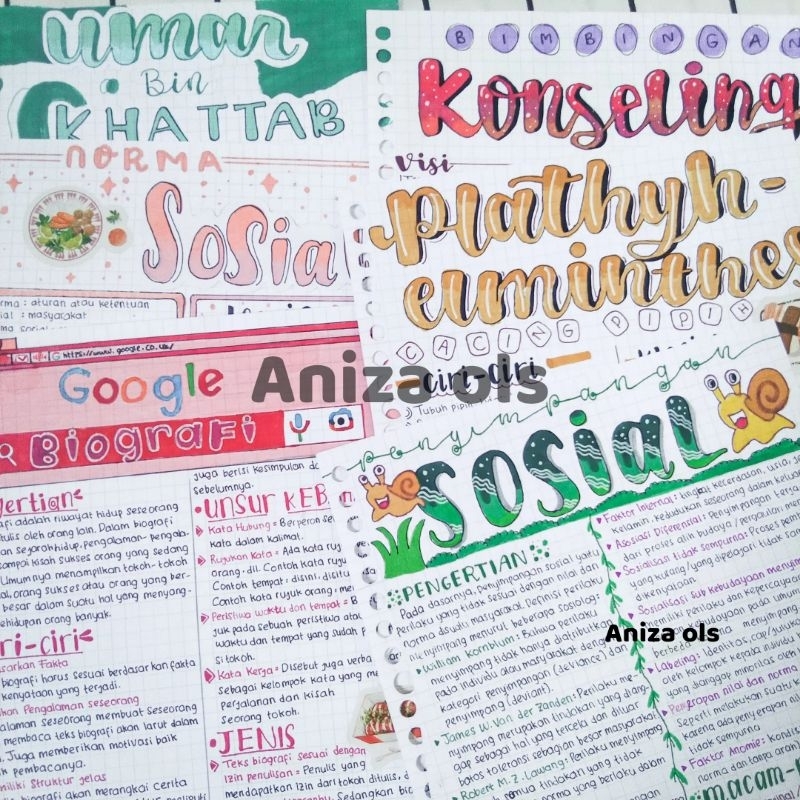 umar
Bin
KHATTAB
NORMA
Sosia
: aturan atau ketentuan
: masyarakat
https://www.google.co.us/
Google
Biografi
adalah riwayat hidup seseorang
ditulis oleh orang lain. Dalam biografi
sampai kisah sukses orang yang sedang
Umumnya menampilkan tokoh-tokoh
orang sukses atau orang yang ber-
besar dalam suatu hal yang menyang-
kehidupan orang banyak.
ri-ciri
Fakta
biografi harus sesuai berdasarkan fakta
kenyataan yang terjadi.
Pengalaman seseorang
seseorang membuat seseorang
membaca teks biografi akan larut dalam
Juga memberikan motivasi baik
pembacanya.
Struktur jelas
biografi akan merangkai cerita
juga berisi kesimpulan
sebelumnya.
UNSUR KEB
Kata Hubung = Berperan
kata dalam kalimat.
Rujukan Kata = Ada kata
orang: dil. Contoh kata
Contoh tempat: disini, disitu
Contoh kata rujuk orang:
Peristiwa waktu dan tempat =
juk pada sebuah peristiwa
waktu dan tempat yang sudah
si tokoh.
Kata Kerja = Disebut juga verba
sebagai kelompok kata yang
perjalanan dan kisah
seorang tokoh.
JENIS
Teks biografi sesuai dengan
Izin penulisan = Penulis yang
mendapatkan izin dari tokoh ditulis,
BIMBINGAN
Konseling
Visi
Plathyh-
elminthes
CACING PIPIH
ciri-ciri
Tubuh pipih
penyimpangan
SOSIAL
PENGERTIAN
Pada dasarnya, penyimpangan sosial yaitu
perilaku yang tidak sesuai dengan nilai dan
norma dsuatu masyarakat. Definisi perilaku
menyimpang menurut beberapa sosiolog:
William Kornblum: Bahwa perilaku
menyimpang tidak hanya diatributkan
pada individu atau masyarakat dengan
kategori penyimpangan (deviance) dan
penyimpang (deviant).
James W. Van der Zanden: Perilaku me-
nyimpang merupakan tindakan yang diang-
gap sebagai hal yang tercela dan diluar
batas toleransi sebagian besar masyarakat
Robert M.Z. Lawang: Perilaku menyimpang
semua tindakan yang tidak
norma yang berlaku dalam
Faktor Internal: tingkat kecerdasan, usia,
kelamin, kedudukan seseorang dalam
Asosiasi Diferensial: Penyimpangan
dari proses alih budaya/pergaulan
Sosialisasi tidak sempurna: Proses
yang kurang/yang dipelajari tidak
kenyataan.
Sosialisasi sub kebudayaan
perilaku dan kepercayaan
pada umum
berbeda
Labeling: Identitas, cap/julukan
oleh kelompok kepada individu
yang dianggap minoritas oleh
Penyerapan nilai dan norma
Seperti melakukan suatu
karena ada penyerapan
tidak sempurna
Faktor Anomie: Kondisi
norma dan tanpa arah
macam-
Aniza ols
Aniza ols